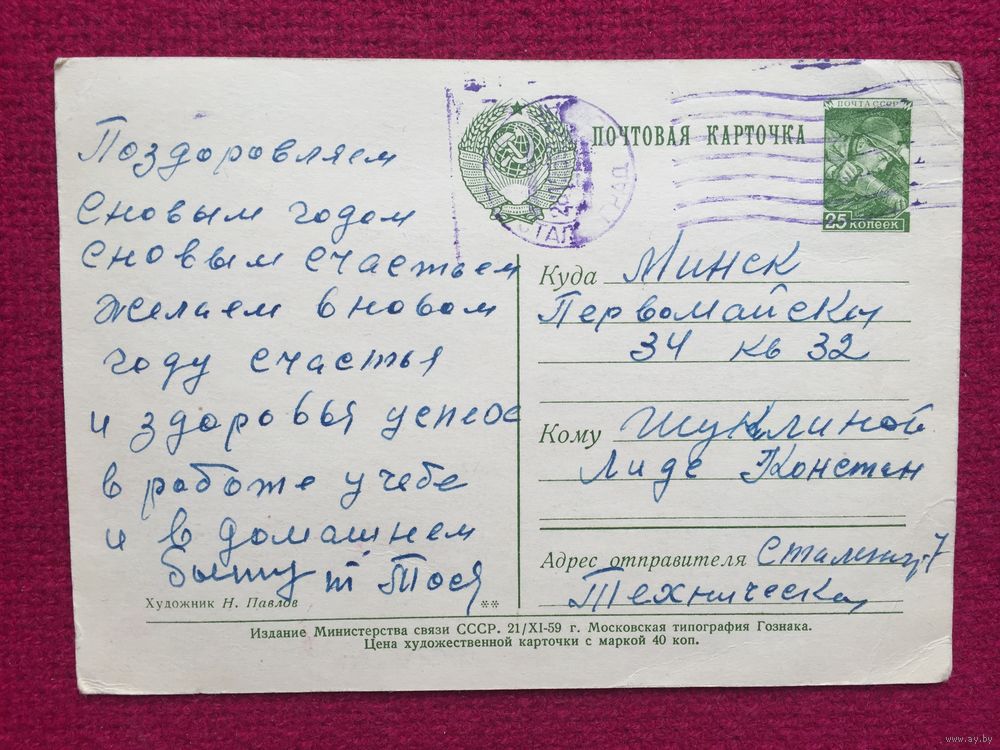 Поздоровляем
сновым годом
сновым счастьем
желаем в новом
году счастья
и здоровья успеов
в работе учебе
и в домашнем
быту т Тося
Художник Н. Павлов
**
ПОЧТОВАЯ КАРТОЧКА
ПОЧТА СССР
25 КОПЕЕК
Куда Минск
Первомайская
34 кв 32
Кому Шуклиной
Лиде Констан
Адрес отправителя Сталинград 7
Техническая
Издание Министерства связи СССР. 21/XI-59 г. Московская типография Гознака.
Цена художественной карточки с маркой 40 коп.
www.ay.by